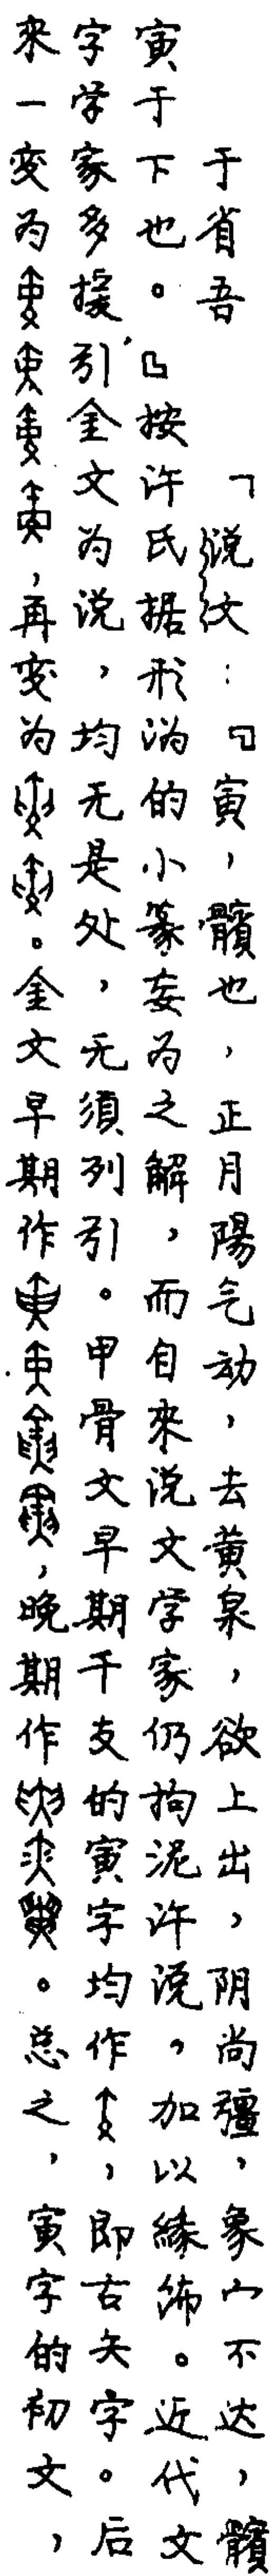 于省吾 「说文：『寅，髕也，正月陽气动，去黄泉，欲上出，阴尚彊，象宀不达，髕
寅于下也。』按许氏据形沩的小篆妄为之解，而自来说文学家仍拘泥许说，加以缘饰。近代文
字学家多援引金文为说，均无是处，无须列引。甲骨文早期干支的寅字均作，即古矢字。后
来一变为，再变为。金文早期作，晚期作。总之，寅字的初文，